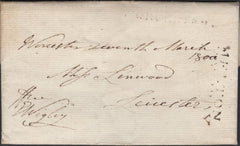 Worcester seventh March
1800
Miss Linwood
Leicester
Free
Wigley